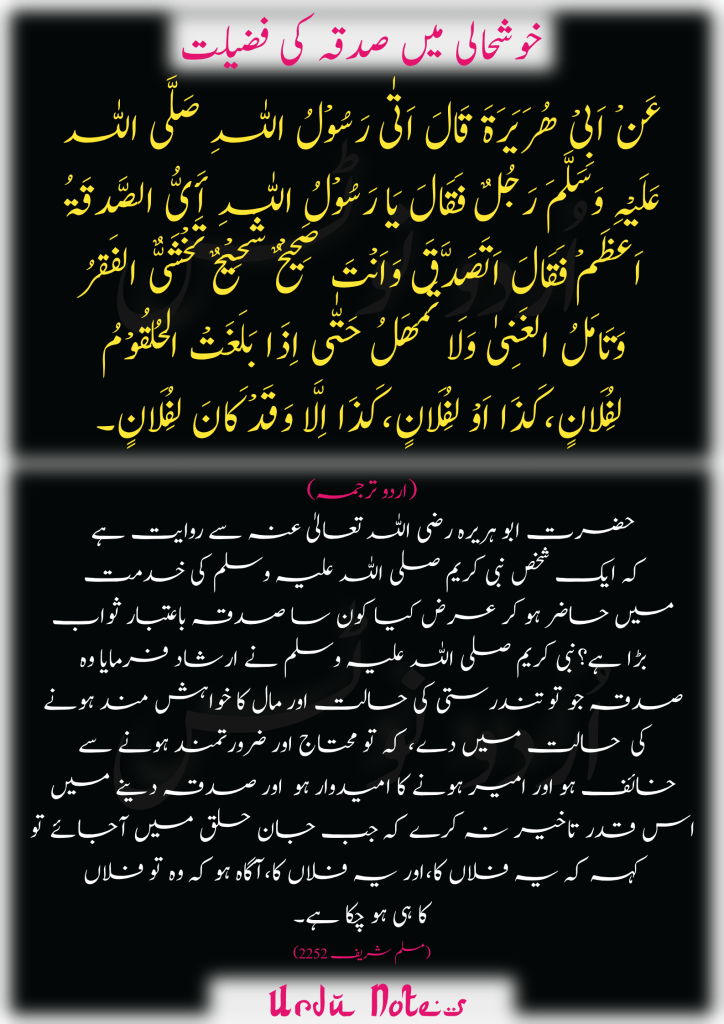 خوشحالی میں صدقہ کی فضیلت
عَنۡ اَبِیۡ ھُرَیَرَۃَ قَالَ اَتٰی رَسُوۡلُ اللہِ صَلَّی اللہ
عَلَیۡہِ وَسَلَّمَ رَجُلٌ فَقَالَ یَا رَسُوۡلُ اللہِ أَیُّ الصَّدقَۃُ
اَعظَمۡ فَقَالَ اَتَصَدَّقَ وَاَنۡتَ صَحِیۡحٌ شَحِیۡحٌ تَخۡشَیٌّ الفَقرُ
وَتَامَلُ الغَنِیٰ وَلَا تُمۡھَلُ حَتّٰی اِذَا بَلَغَتۡ الحُلقُوۡمُ
لِفُلَانٍ،کَذَا اَوۡ لِفُلَانٍ،کَذَا اِلَّا وَقَدۡکَانَ لِفُلَانٍ۔
(اردو ترجمہ)
حضرت ابو ہریرہ رضی اللہ تعالیٰ عنہ سے روایت ہے
کہ ایک شخص نبی کریم صلی اللہ علیہ وسلم کی خدمت
میں حاضر ہو کر عرض کیا کون سا صدقہ باعتبار ثواب
بڑا ہے؟نبی کریم صلی اللہ علیہ وسلم نے ارشاد فرمایا وہ
صدقہ جو تو تندرستی کی حالت اور مال کا خواہش مند ہونے
کی حالت میں دے، کہ تو محتاج اور ضرورتمند ہونے سے
خائف ہو اور امیر ہونے کا امیدوار ہو اور صدقہ دینے میں
اس قدر تاخیر نہ کرے کہ جب جان حلق میں آجائے تو
کہہ کہ یہ فلاں کا،اور یہ فلاں کا،آگاہ ہو کہ وہ تو فلاں
کا ہی ہو چکا ہے۔
(مسلم شریف 2252)
Urdu Notes
اُردو نوٹس